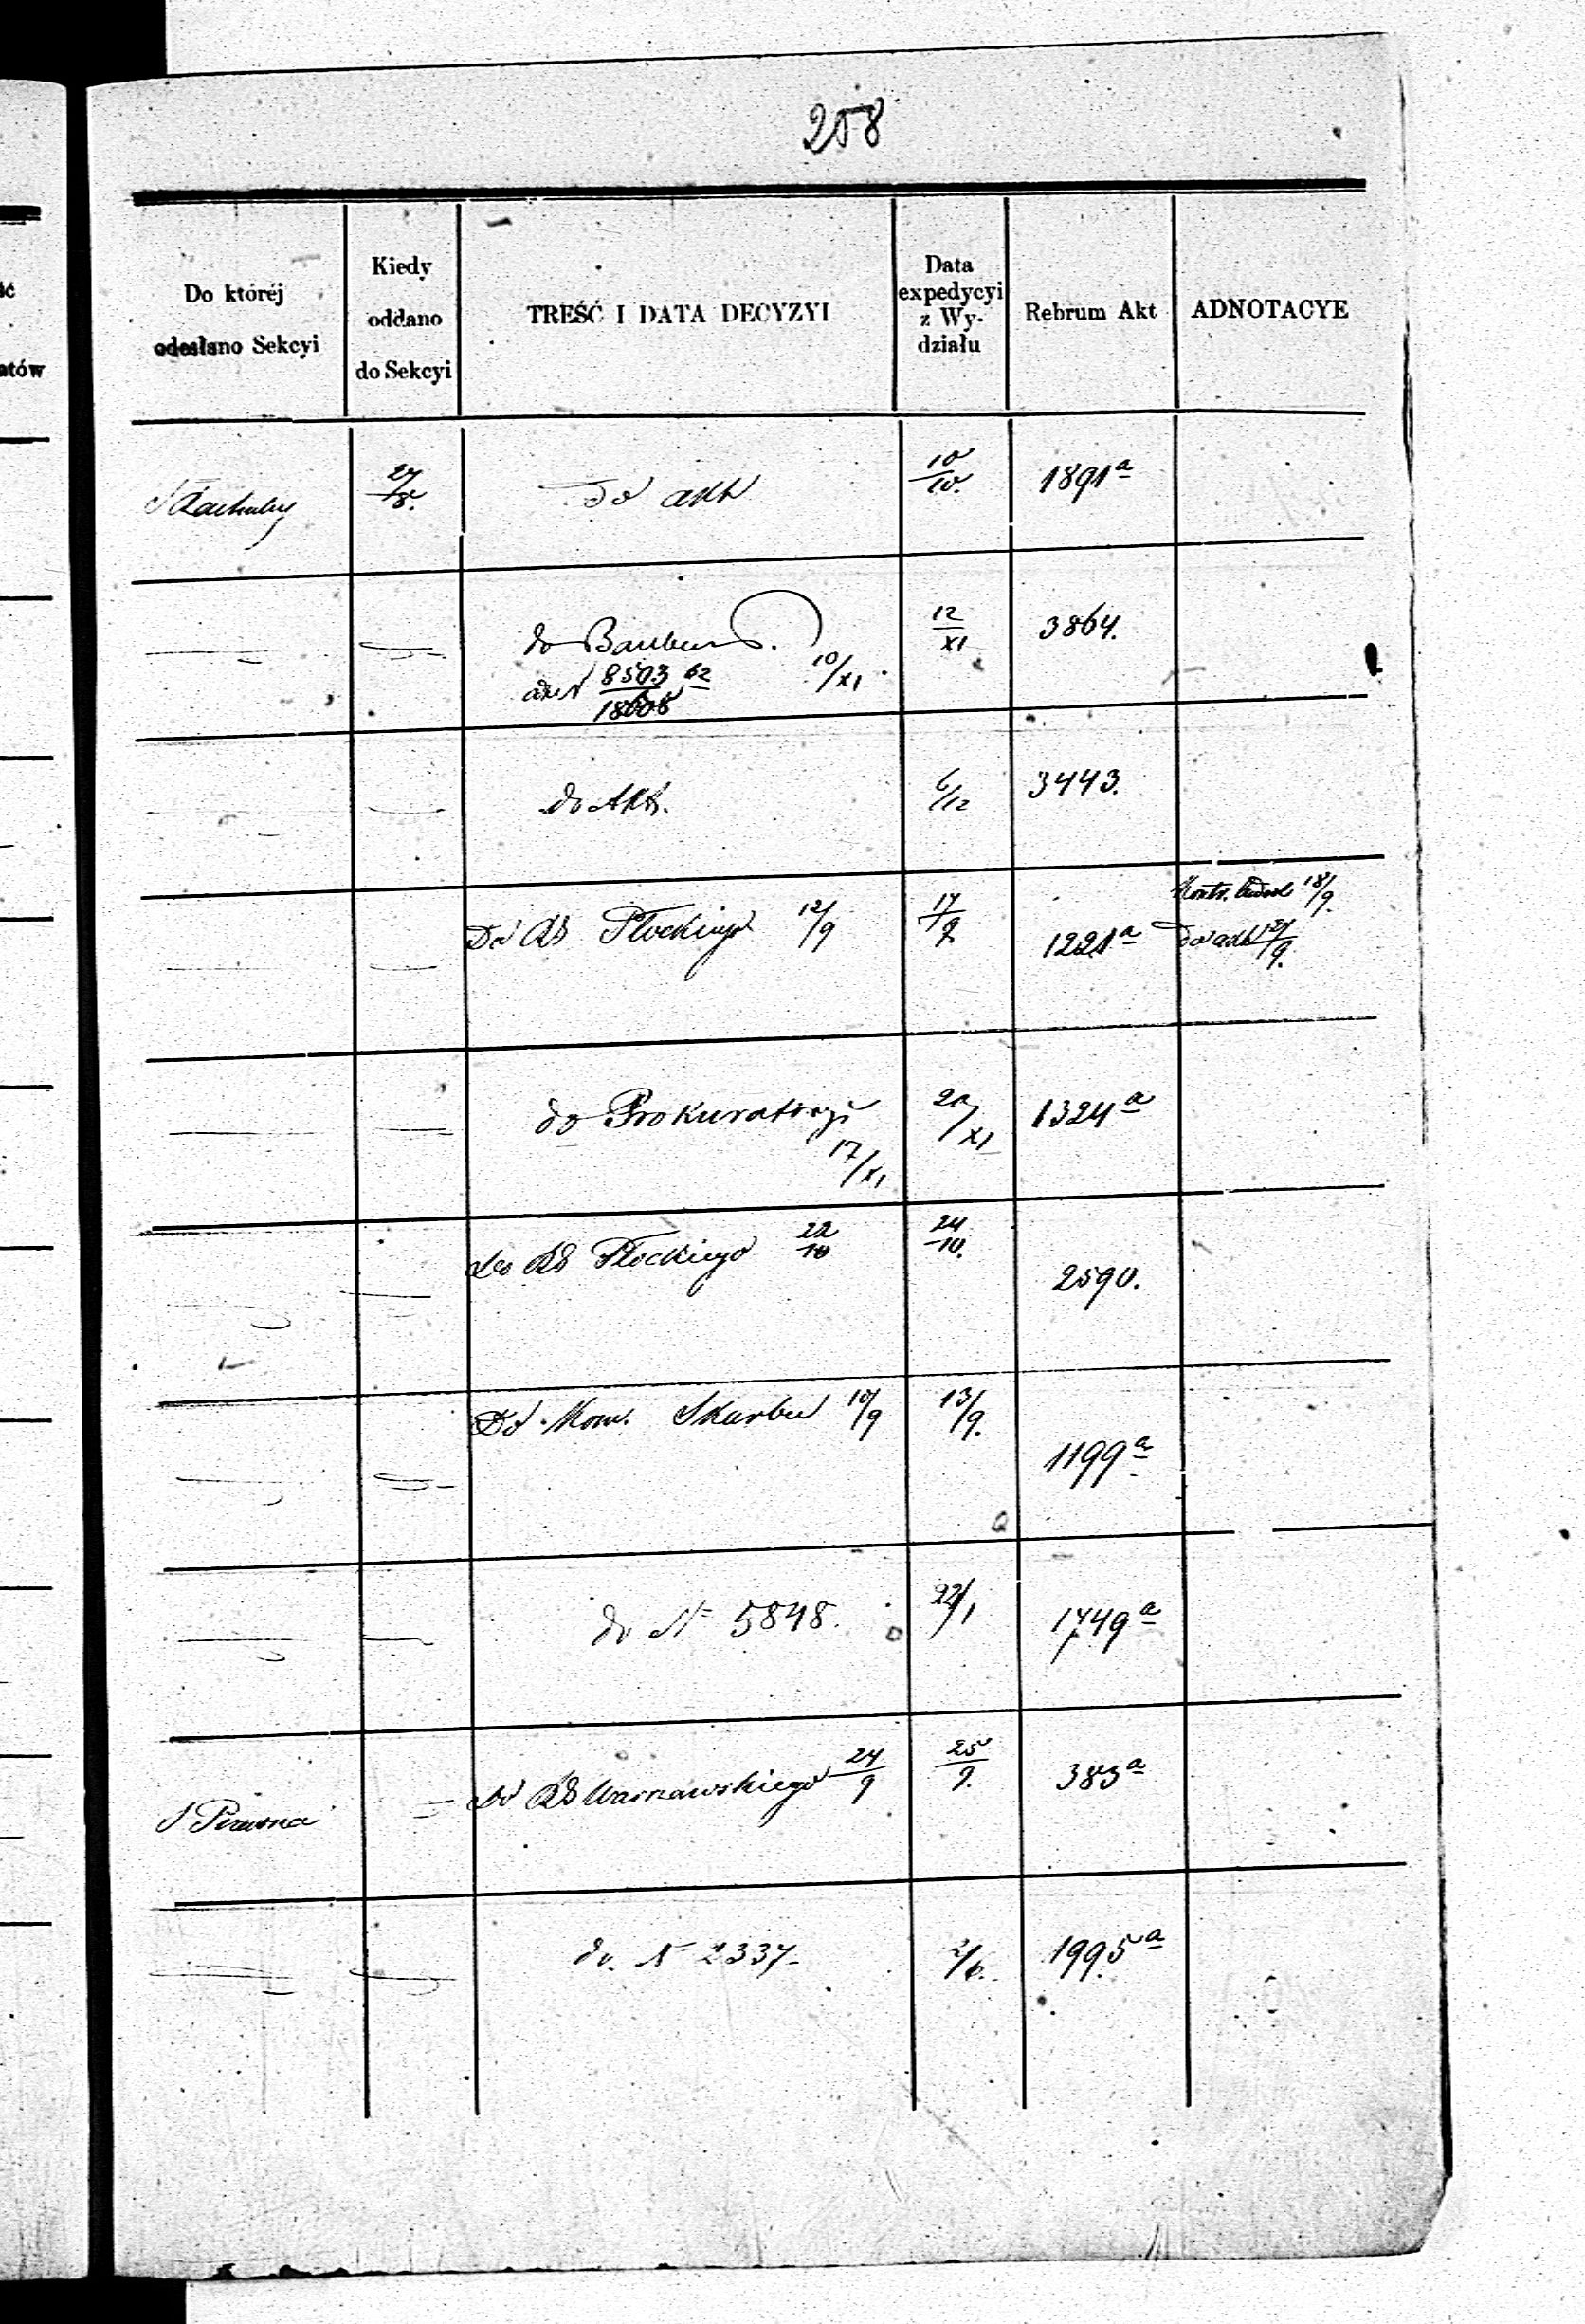 258
Do któréj
odesłano Sekcyi
Kiedy
oddano
do Sekcyi
TREŚĆ I DATA DECYZYI
Data
expedycyi
z Wy-
działu
Rebrum Akt
ADNOTACYE
27/8.
do akt
10/10.
1891a
do
10/XI.
8503 62
12/XI
3864.
do Akt.
6/12
3443.
Do Płockiego 12/9
17/9
1221a
18/9.
do akt
do Prokuratoryi
17/XI
XI
1324a
do Płockiego 22/10
24/10.
2590.
Do Kom. Skarbu 10/9
13/9.
1199a
do N 5848.
22/1
1749a
S
do Warszawskiego 24/9
25/9.
383a
do N 2337.
2/6.
1995a